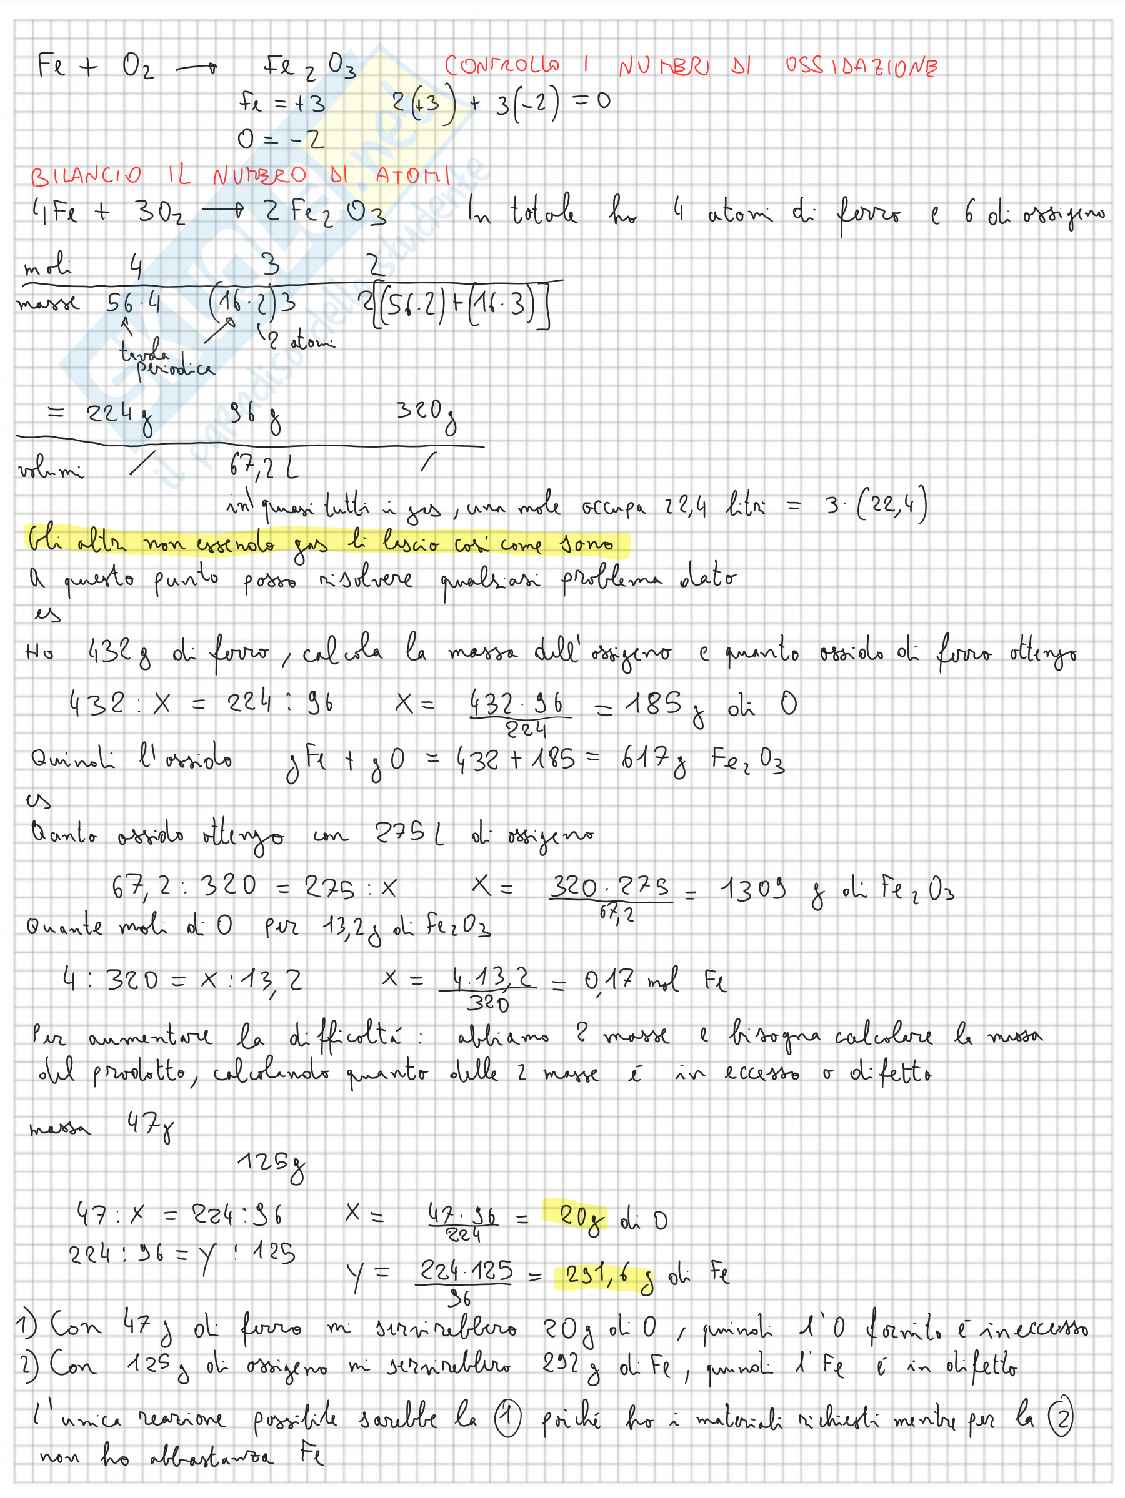 Fe + O2 → Fe2O3 CONTROLLO I NUMERI DI OSSIDAZIONE
Fe = +3 2(+3) + 3(-2) = 0
O = -2
BILANCIO IL NUMERO DI ATOMI
4Fe + 3O2 → 2Fe2O3 In totale ho 4 atomi di ferro e 6 di ossigeno
moli 4 3 2
masse 56·4 (16·2)3 2[(56·2)+(16·3)]
tavola periodica 2 atomi
= 224g 96g 320g
volumi / 67,2L /
in quasi tutti i gas, una mole occupa 22,4 litri = 3·(22,4)
Gli altri non essendo gas li lascio così come sono
A questo punto posso risolvere qualsiasi problema dato
es
Ho 432g di ferro, calcola la massa dell'ossigeno e quanto ossido di ferro ottengo
432 : X = 224 : 96 X = 432·96/224 = 185g di O
Quindi l'ossido gFe + gO = 432 + 185 = 617g Fe2O3
es
Qanto ossido ottengo con 275L di ossigeno
67,2 : 320 = 275 : X X = 320·275/67,2 = 1309 g di Fe2O3
Quante moli di O per 13,2g di Fe2O3
4 : 320 = X : 13,2 X = 4·13,2/320 = 0,17 mol Fe
Per aumentare la difficoltá : abbiamo 2 masse e bisogna calcolare la massa
del prodotto, calcolando quanto delle 2 masse é in eccesso o difetto
massa 47g
125g
47 : X = 224 : 96 X = 47·96/224 = 20g di O
224 : 96 = Y : 125
Y = 224·125/96 = 291,6g di Fe
1) Con 47g di ferro mi servirebbero 20g di O, quindi l'O fornito é in eccesso
2) Con 125g di ossigeno mi servirebbero 292g di Fe, quindi l'Fe é in difetto
L'unica reazione possibile sarebbe la 1 poiché ho i materiali richiesti mentre per la 2
non ho abbastanza Fe